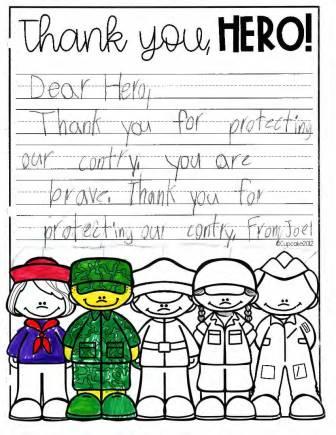 Thank you, HERO!
Dear Hero,
Thank you for protecting
our contry, you are
brave. Thank you for
protecting our contry, From Joel
©Cupcake2012